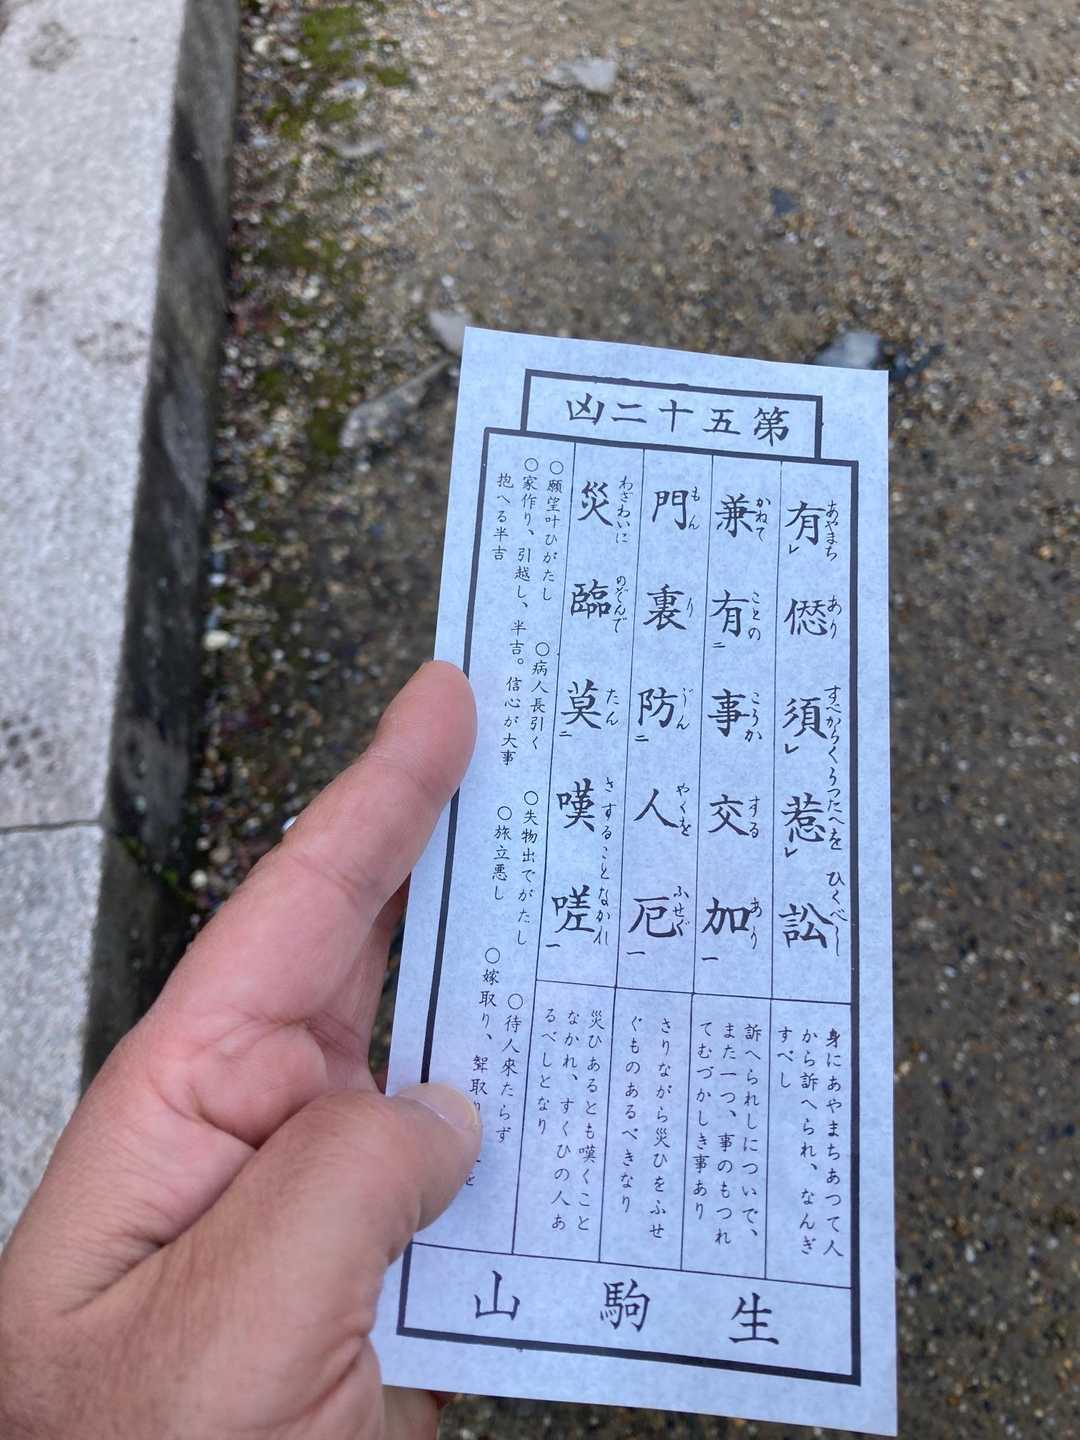 第五十二凶
有愆須惹訟
あやまち あり すべからくうつたへを ひくべし
兼有事交加
かねて ことの こうか する あり
門裏防人厄
もん り じん やくを ふせぐ
災臨莫嘆嗟
わざわいに のぞんで たん さすることなかれ
身にあやまちあつて人
から訴へられ、なんぎ
すべし
訴へられしについで、
また一つ、事のもつれ
てむづかしき事あり
さりながら災ひをふせ
ぐものあるべきなり
災ひあるとも嘆くこと
なかれ、すくひの人あ
るべしとなり
○願望叶ひがたし ○病人長引く ○失物出でがたし ○待人來たらず
○家作り、引越し、半吉。信心が大事 ○旅立悪し ○嫁取り、聟取り
抱へる半吉
生駒山